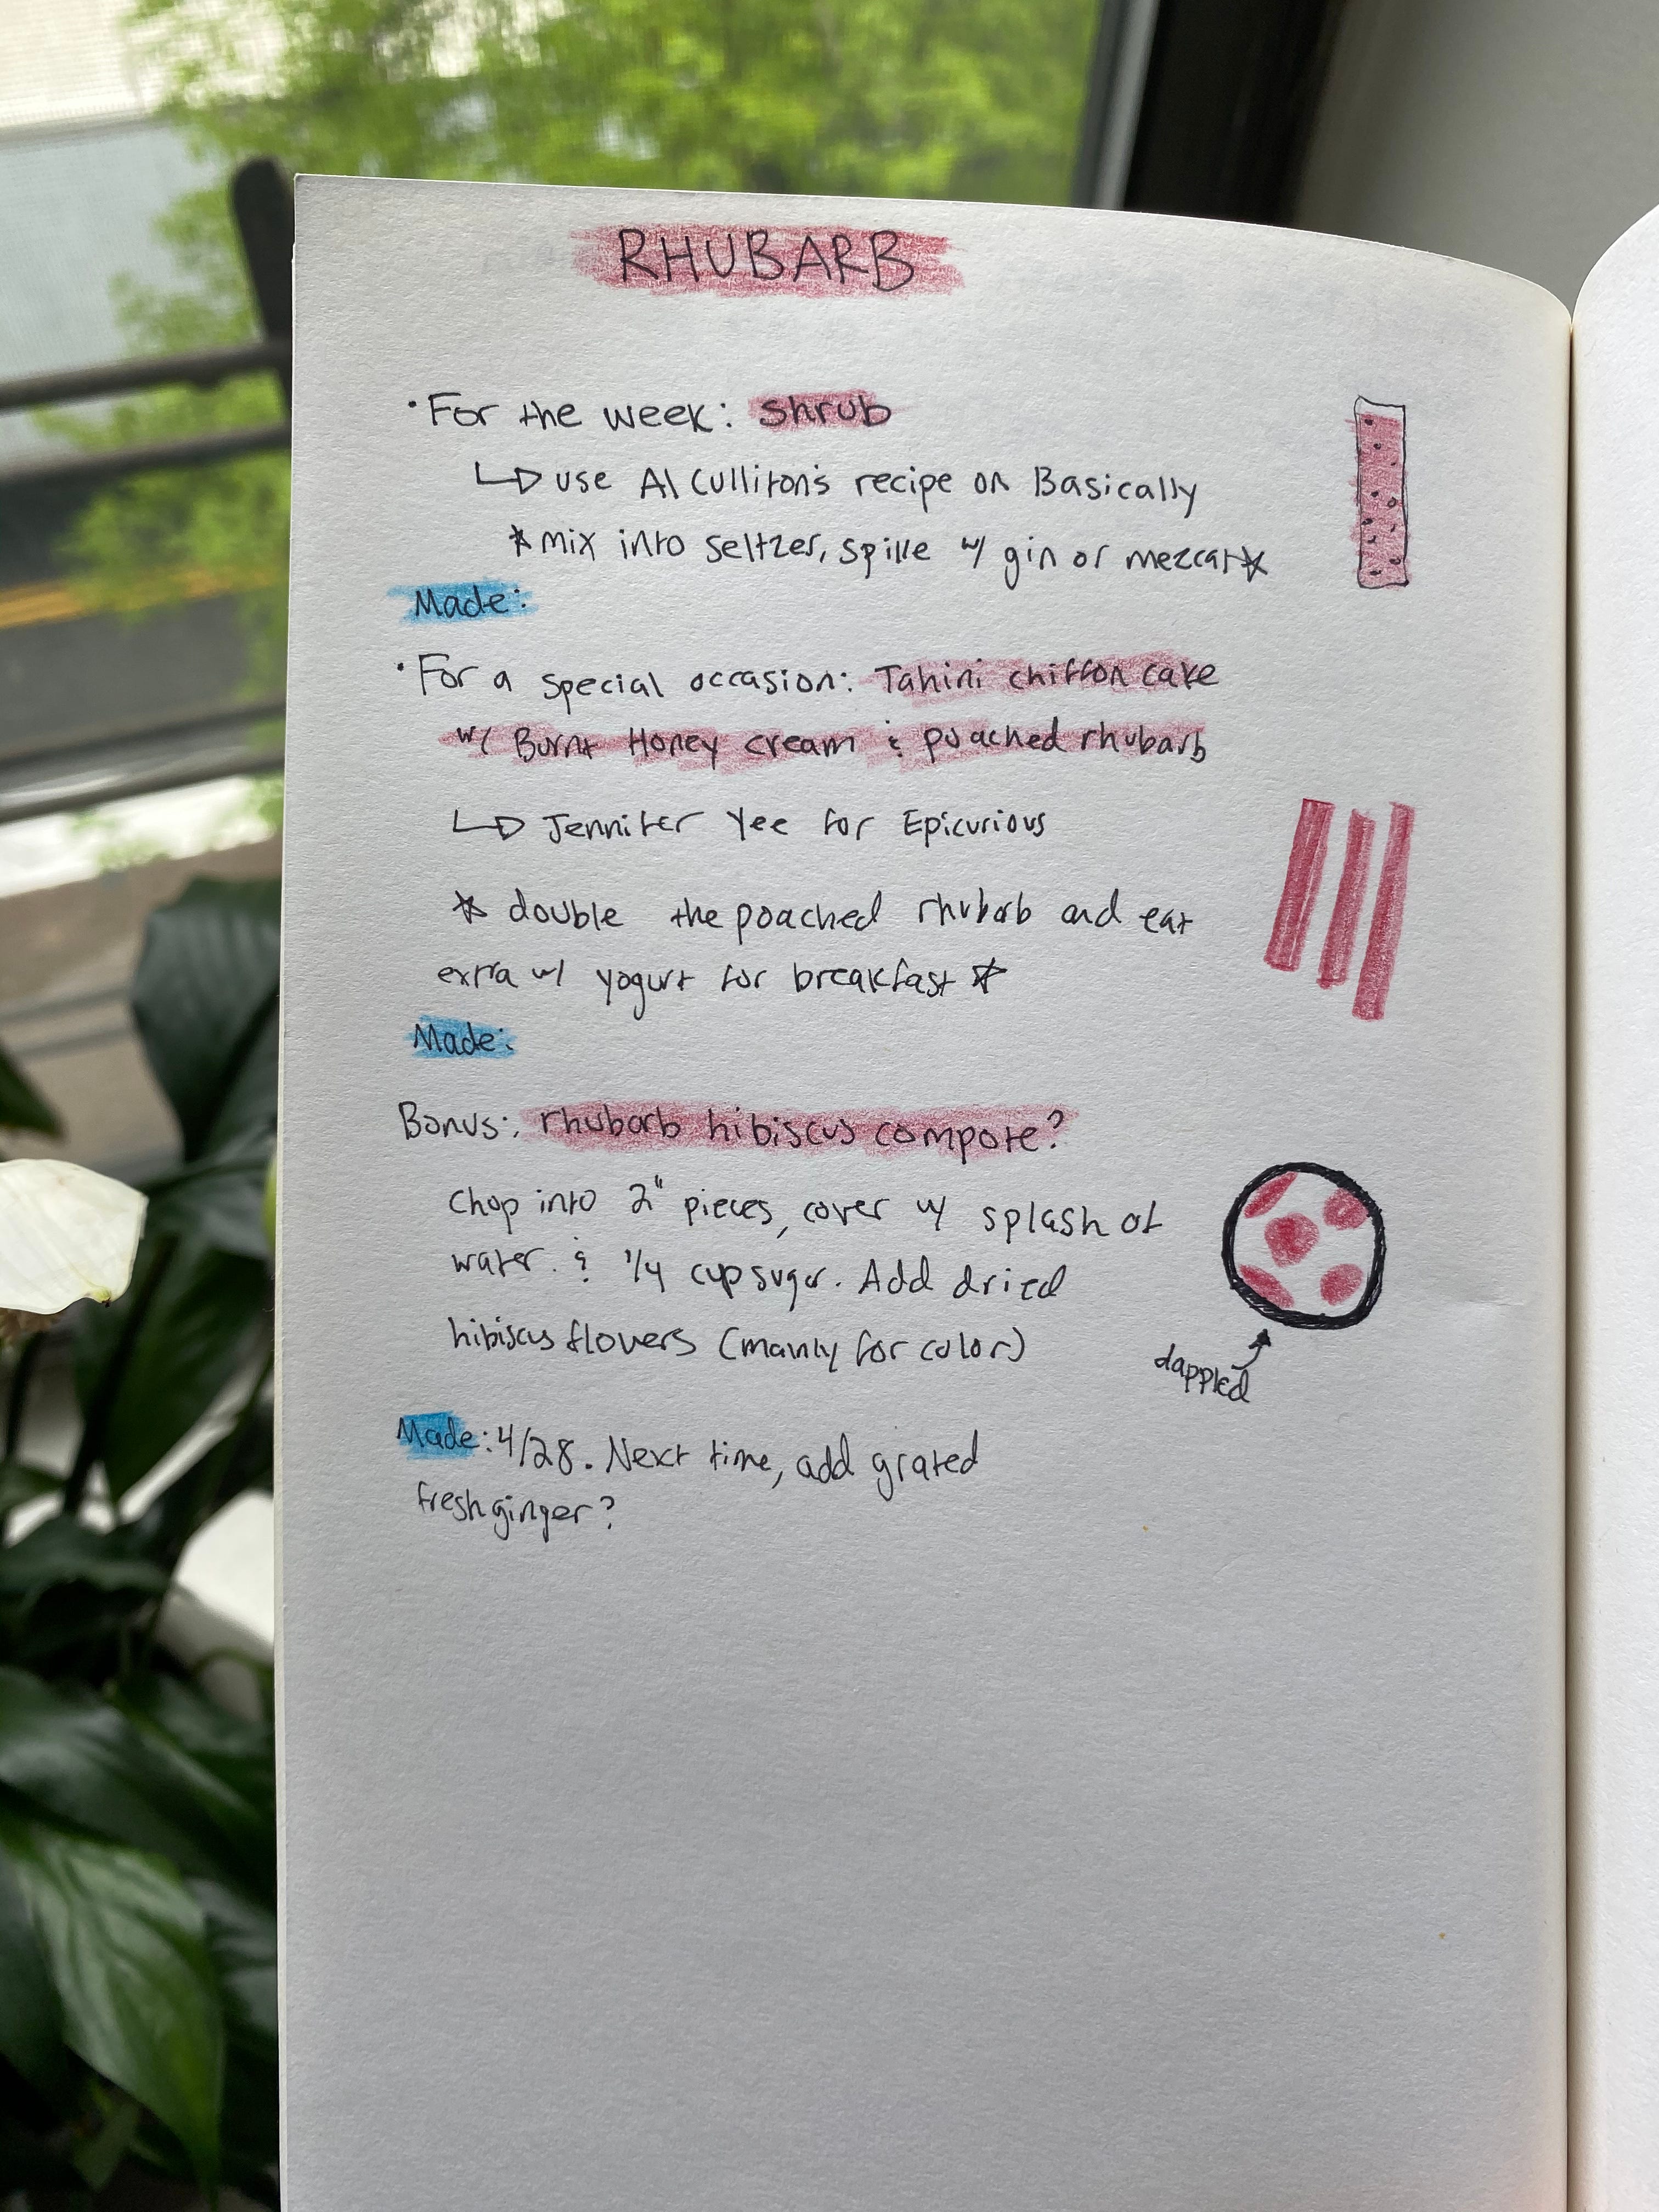 RHUBARB
• For the week: shrub
↳ use Al Culliton's recipe on Basically
* mix into seltzer, spike w/ gin or mezcal *
Made:
• For a special occasion: Tahini chiffon cake
w/ Burnt Honey cream & poached rhubarb
↳ Jennifer Yee for Epicurious
* double the poached rhubarb and eat
extra w/ yogurt for breakfast *
Made:
Bonus: rhubarb hibiscus compote?
Chop into 2" pieces, cover w/ splash of
water. & 1/4 cup sugar. Add dried
hibiscus flowers (mainly for color)
dappled
Made: 4/28. Next time, add grated
fresh ginger?